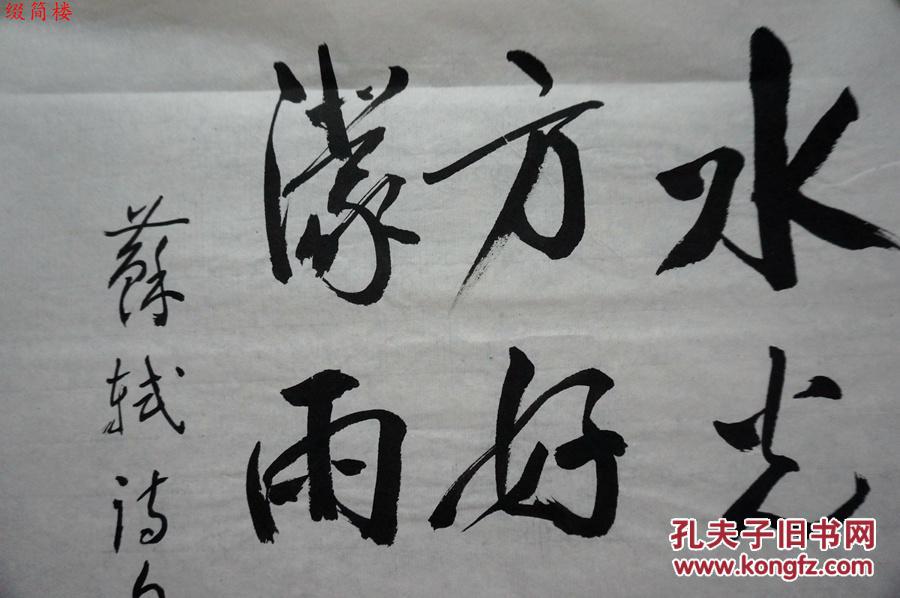 缀简楼
水光
方好
濛雨
蘇軾诗句
孔夫子旧书网
www.kongfz.com